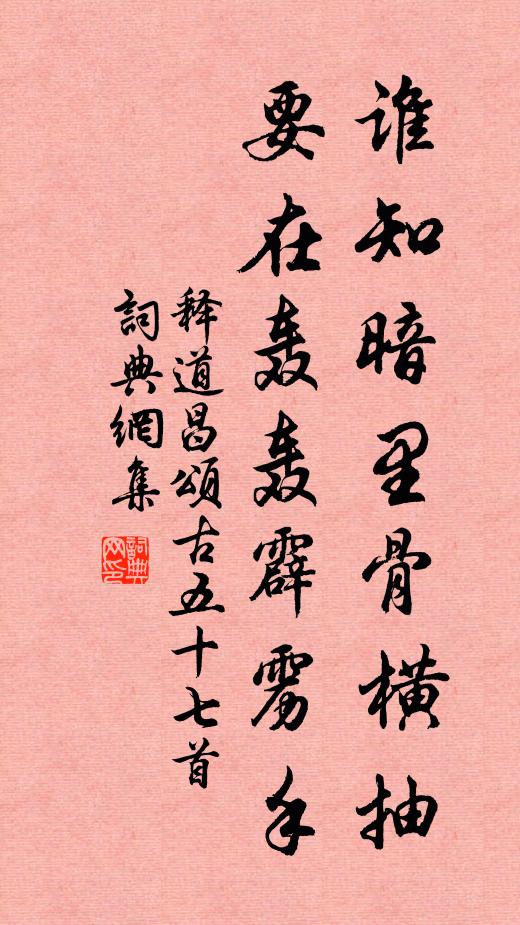 谁知暗里骨横抽
要在轰轰霹雳手
释道昌頌古五十七首
詞典網集
詞典网印